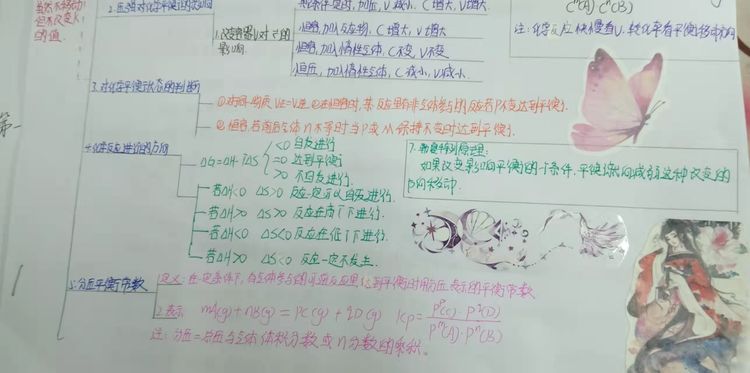 当然不移动
但不改变K
的值.
2.压强对化学平衡的影响
1.改变容器V对v的
影响
恒温,加入反应物,C增大,v增大
恒容,加入惰性气体,C不变,v不变
恒压,加入惰性气体,C减小,v减小.
注:化学反应快慢看v,转化率看平衡移动方向
3.对化学平衡状态的判断
①对同一物质V正=V逆
达到平衡.
②恒容,若前后气体n不等时当P或M保持不变时达到平衡.
4.化学反应进行的方向
ΔG=ΔH-TΔS
<0 自发进行
=0 达到平衡
>0 不自发进行.
若ΔH<0 ΔS>0 反应一定可以自发进行.
若ΔH>0 ΔS>0 反应在高T下进行.
若ΔH<0 ΔS<0 反应在低T下进行.
若ΔH>0 ΔS<0 反应一定不发生.
7.勒夏特列原理:
如果改变影响平衡的一个条件,平衡将向减弱这种改变的
方向移动.
5.分压平衡常数
定义:在一定条件下,有气体参与的可逆反应里达到平衡时用分压表示的平衡常数
2.表示 mA(g)+nB(g)=pC(g)+qD(g) Kp=
P^p(C)·P^q(D)
P^m(A)·P^n(B)
注:分压=总压与气体体积分数或n分数的乘积。
第一